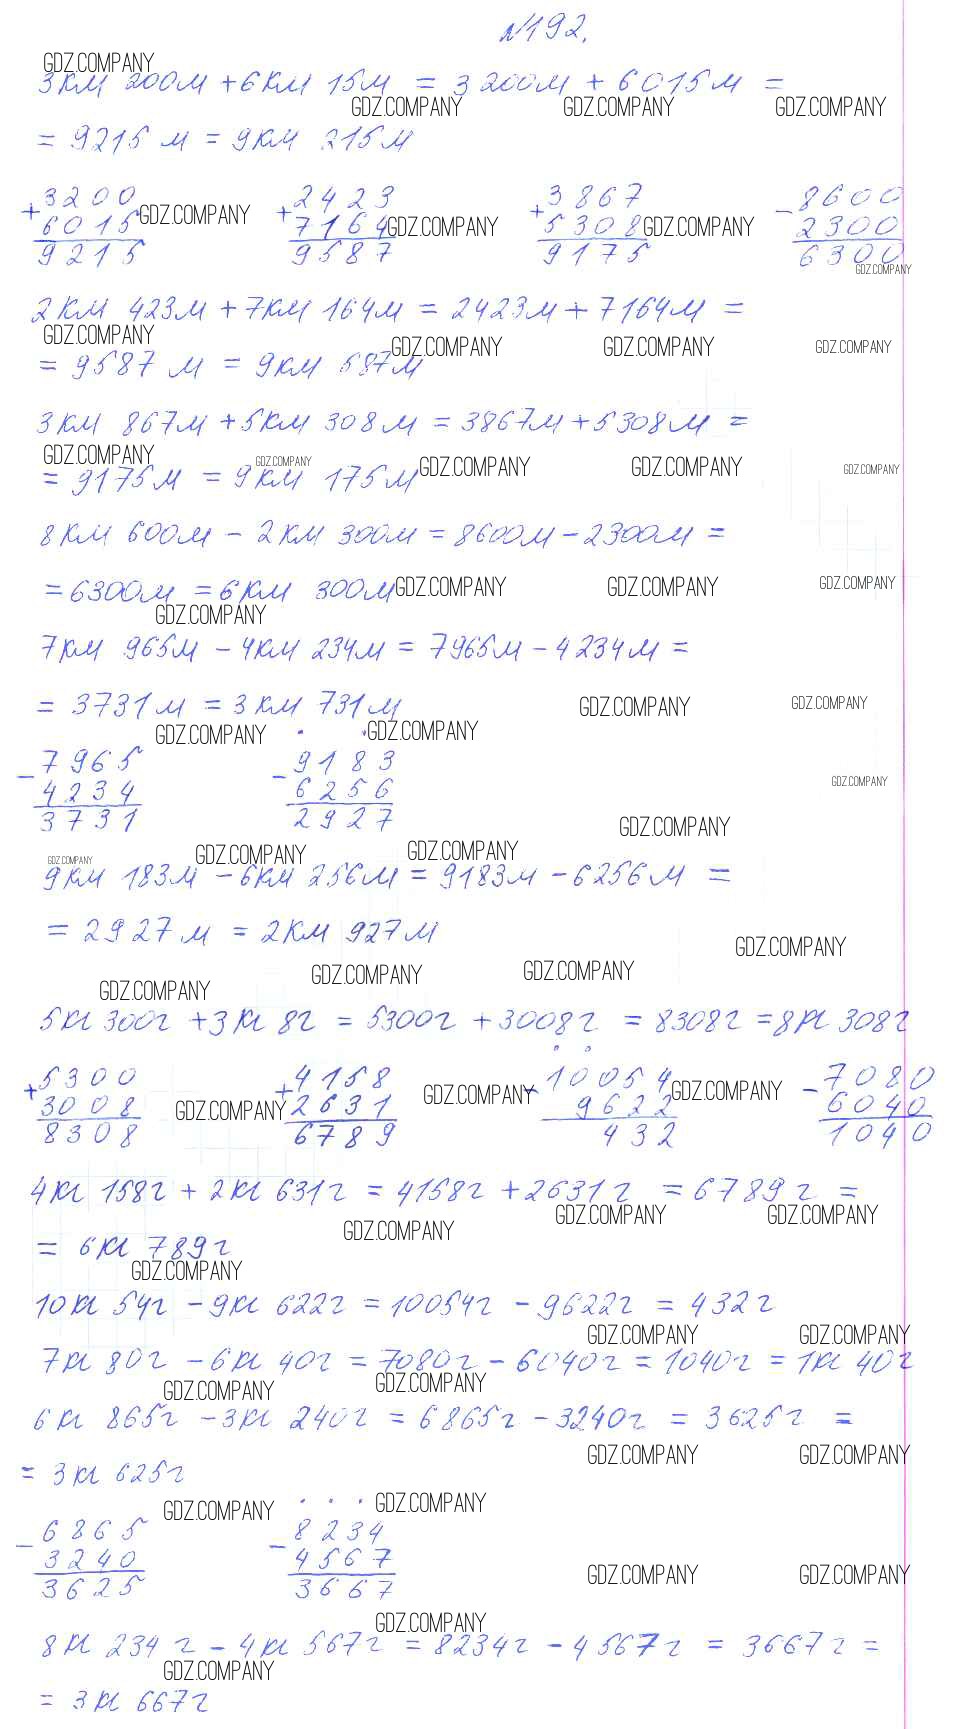 №192.
GDZ.COMPANY
3км 200м + 6км 15м = 3200м + 6015м =
GDZ.COMPANY GDZ.COMPANY GDZ.COMPANY
= 9215м = 9км 215м
3200 2423 3867 8600
+ + + -
6015 7164 5308 2300
GDZ.COMPANY GDZ.COMPANY GDZ.COMPANY
9215 9587 9175 6300
GDZ.COMPANY
2км 423м + 7км 164м = 2423м + 7164м =
GDZ.COMPANY GDZ.COMPANY GDZ.COMPANY GDZ.COMPANY
= 9587 м = 9км 587м
3км 867м + 5км 308м = 3867м + 5308м =
GDZ.COMPANY GDZ.COMPANY GDZ.COMPANY GDZ.COMPANY GDZ.COMPANY
= 9175м = 9км 175м
8км 600м - 2км 300м = 8600м - 2300м =
= 6300м = 6км 300м GDZ.COMPANY GDZ.COMPANY GDZ.COMPANY
GDZ.COMPANY
7км 965м - 4км 234м = 7965м - 4234м =
= 3731м = 3км 731м GDZ.COMPANY GDZ.COMPANY
GDZ.COMPANY GDZ.COMPANY
7965 9183
- -
4234 6256 GDZ.COMPANY
3731 2927 GDZ.COMPANY
GDZ.COMPANY GDZ.COMPANY GDZ.COMPANY
9км 183м - 6км 256м = 9183м - 6256м =
= 2927м = 2км 927м
GDZ.COMPANY
GDZ.COMPANY GDZ.COMPANY GDZ.COMPANY
5кг 300г + 3кг 8г = 5300г + 3008г = 8308г = 8кг 308г
5300 4158 10054 7080
+ + - -
GDZ.COMPANY GDZ.COMPANY GDZ.COMPANY
3008 2631 9622 6040
8308 6789 432 1040
4кг 158г + 2кг 631г = 4158г + 2631г = 6789г =
GDZ.COMPANY GDZ.COMPANY GDZ.COMPANY
= 6кг 789г
GDZ.COMPANY
10кг 54г - 9кг 622г = 10054г - 9622г = 432г
GDZ.COMPANY GDZ.COMPANY
7кг 80г - 6кг 40г = 7080г - 6040г = 1040г = 1кг 40г
GDZ.COMPANY GDZ.COMPANY
6кг 865г - 3кг 240г = 6865г - 3240г = 3625г =
GDZ.COMPANY GDZ.COMPANY
= 3кг 625г
GDZ.COMPANY GDZ.COMPANY
6865 8234
- -
3240 4567
GDZ.COMPANY GDZ.COMPANY
3625 3667
GDZ.COMPANY
8кг 234г - 4кг 567г = 8234г - 4567г = 3667г =
GDZ.COMPANY
= 3кг 667г